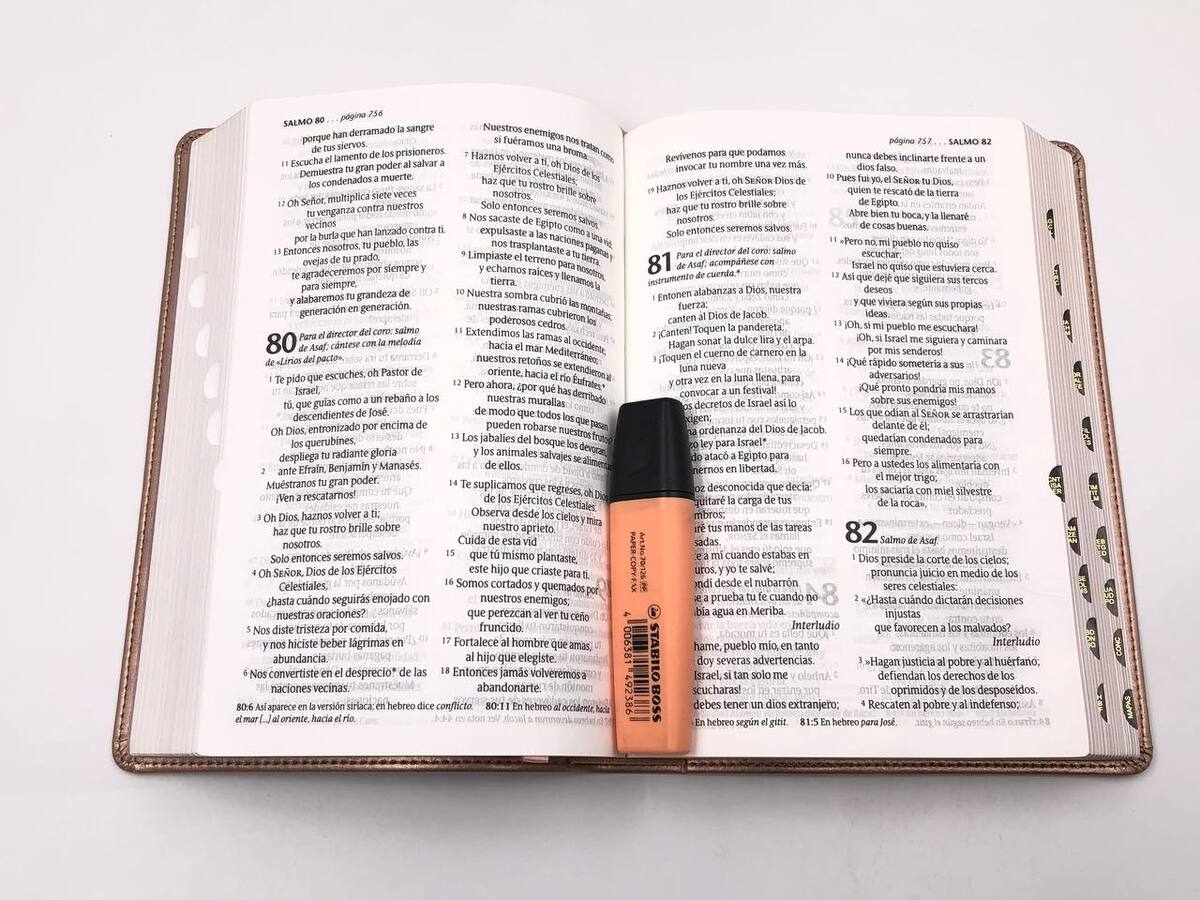 SALMO 80 . . . página 756
porque han derramado la sangre
de tus siervos.
11 Escucha el lamento de los prisioneros.
Demuestra tu gran poder al salvar a
los condenados a muerte.
12 Oh Señor, multiplica siete veces
tu venganza contra nuestros
vecinos
por la burla que han lanzado contra ti.
13 Entonces nosotros, tu pueblo, las
ovejas de tu prado,
te agradeceremos por siempre y
para siempre,
y alabaremos tu grandeza de
generación en generación.
80 Para el director del coro: salmo
de Asaf; cántese con la melodía
de «Lirios del pacto».
1 Te pido que escuches, oh Pastor de
Israel,
tú, que guías como a un rebaño a los
descendientes de José.
Oh Dios, entronizado por encima de
los querubines,
despliega tu radiante gloria
2 ante Efraín, Benjamín y Manasés.
Muéstranos tu gran poder.
¡Ven a rescatarnos!
3 Oh Dios, haznos volver a ti;
haz que tu rostro brille sobre
nosotros.
Solo entonces seremos salvos.
4 Oh SEÑOR, Dios de los Ejércitos
Celestiales,
¿hasta cuándo seguirás enojado con
nuestras oraciones?
5 Nos diste tristeza por comida,
y nos hiciste beber lágrimas en
abundancia.
6 Nos convertiste en el desprecio* de las
naciones vecinas.
Nuestros enemigos nos tratan como
si fuéramos una broma.
7 Haznos volver a ti, oh Dios de los
Ejércitos Celestiales;
haz que tu rostro brille sobre
nosotros.
Solo entonces seremos salvos.
8 Nos sacaste de Egipto como a una vid;
expulsaste a las naciones paganas y
nos trasplantaste a tu tierra.
9 Limpiaste el terreno para nosotros,
y echamos raíces y llenamos la
tierra.
10 Nuestra sombra cubrió las montañas;
nuestras ramas cubrieron los
poderosos cedros.
11 Extendimos las ramas al occidente,
hacia el mar Mediterráneo;
nuestros retoños se extendieron al
oriente, hacia el río Éufrates.*
12 Pero ahora, ¿por qué has derribado
nuestras murallas
de modo que todos los que pasan
pueden robarse nuestros frutos?
13 Los jabalíes del bosque los devoran,
y los animales salvajes se alimentan
de ellos.
14 Te suplicamos que regreses, oh Dios
de los Ejércitos Celestiales.
Observa desde los cielos y mira
nuestro aprieto.
Cuida de esta vid
15 que tú mismo plantaste,
este hijo que criaste para ti.
16 Somos cortados y quemados por
nuestros enemigos;
que perezcan al ver tu ceño
fruncido.
17 Fortalece al hombre que amas,
al hijo que elegiste.
18 Entonces jamás volveremos a
abandonarte.
80:6 Así aparece en la versión siríaca; en hebreo dice conflicto. 80:11 En hebreo al occidente, hacia
el mar [...] al oriente, hacia el río.
página 757 . . . SALMO 82
Revívenos para que podamos
invocar tu nombre una vez más.
19 Haznos volver a ti, oh SEÑOR Dios de
los Ejércitos Celestiales;
haz que tu rostro brille sobre
nosotros.
Solo entonces seremos salvos.
81 Para el director del coro: salmo
de Asaf; acompáñese con
instrumento de cuerda.*
1 Entonen alabanzas a Dios, nuestra
fuerza;
canten al Dios de Jacob.
2 ¡Canten! Toquen la pandereta.
Hagan sonar la dulce lira y el arpa.
3 ¡Toquen el cuerno de carnero en la
luna nueva
y otra vez en la luna llena, para
convocar a un festival!
decretos de Israel así lo
exigen;
ordenanza del Dios de Jacob.
ley para Israel*
atacó a Egipto para
en libertad.
voz desconocida que decía:
quitaré la carga de tus
tus manos de las tareas
a mí cuando estabas en
y yo te salvé;
desde el nubarrón
a prueba tu fe cuando no
agua en Meriba.
Interludio
pueblo mío, en tanto
doy severas advertencias.
Israel, si tan solo me
debes tener un dios extranjero;
nunca debes inclinarte frente a un
dios falso.
10 Pues fui yo, el SEÑOR tu Dios,
quien te rescató de la tierra
de Egipto.
Abre bien tu boca, y la llenaré
de cosas buenas.
11 »Pero no, mi pueblo no quiso
escuchar;
Israel no quiso que estuviera cerca.
12 Así que dejé que siguiera sus tercos
deseos
y que viviera según sus propias
ideas.
13 ¡Oh, si mi pueblo me escuchara!
¡Oh, si Israel me siguiera y caminara
por mis senderos!
14 ¡Qué rápido sometería a sus
adversarios!
¡Qué pronto pondría mis manos
sobre sus enemigos!
15 Los que odian al SEÑOR se arrastrarían
delante de él;
quedarían condenados para
siempre.
16 Pero a ustedes los alimentaría con
el mejor trigo;
los saciaría con miel silvestre
de la roca».
82 Salmo de Asaf.
1 Dios preside la corte de los cielos;
pronuncia juicio en medio de los
seres celestiales:
2 «¿Hasta cuándo dictarán decisiones
injustas
que favorecen a los malvados?
Interludio
3 »Hagan justicia al pobre y al huérfano;
defiendan los derechos de los
oprimidos y de los desposeídos.
4 Rescaten al pobre y al indefenso;
En hebreo según el gittit. 81:5 En hebreo para José.
Art.No.70/126
PAPER-COPY-FAX
STABILO BOSS
4 006381 492386
CONC
MAPAS